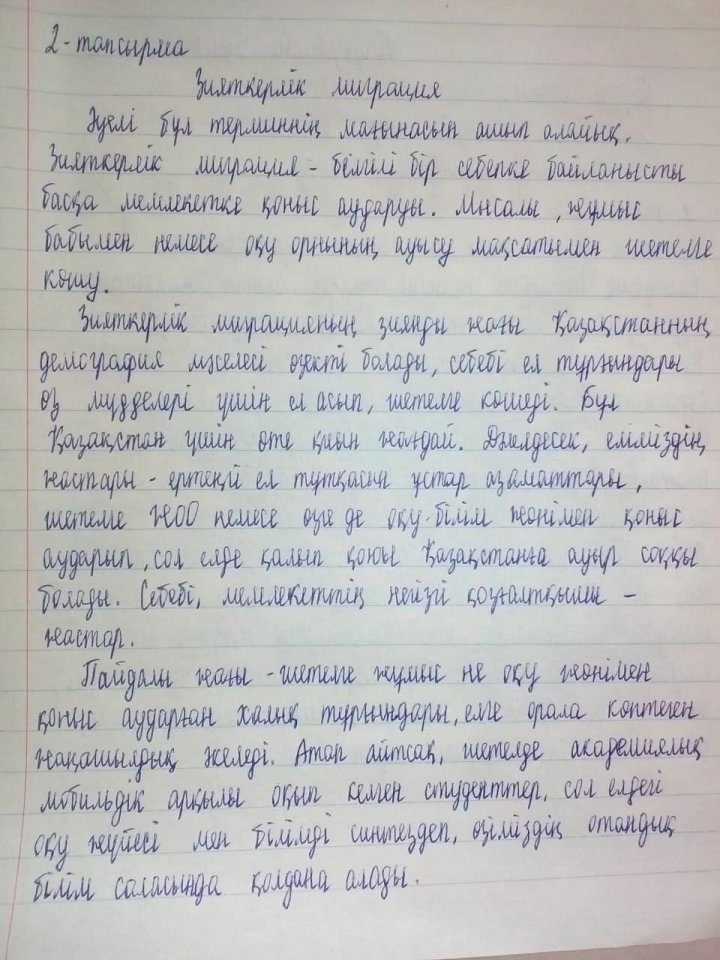 2-тапсырма
Зияткерлік миграция
Әуелі бұл терминнің мағынасын ашып алайық.
Зияткерлік миграция - белгілі бір себепке байланысты
басқа мемлекетке қоныс аударуы. Мысалы, жұмыс
бабымен немесе оқу орнының ауысу мақсатымен шетелге
көшу.
Зияткерлік миграцияның зиянды жағы Қазақстанның
демография мәселесі өзекті болады, себебі ел тұрғындары
өз мүдделері үшін ел асып, шетелге көшеді. Бұл
Қазақстан үшін өте қиын жағдай. Дәлелдесек, еліміздің
жастары - ертеңгі ел тұтқасын ұстар азаматтары,
шетелге ЖОО немесе өзге де оқу-білім жөнімен қоныс
аударып, сол елде қалып қоюы Қазақстанға ауыр соққы
болады. Себебі, мемлекеттің негізгі қозғалтқышы -
жастар.
Пайдалы жағы - шетелге жұмыс не оқу жөнімен
қоныс аударған халық тұрғындары, елге орала көптеген
жаңашылдық әкеледі. Атап айтсақ, шетелде академиялық
мобильдік арқылы оқып келген студенттер, сол елдегі
оқу жүйесі мен білімді синтездеп, өзіміздің отандық
білім саласында қолдана алады.